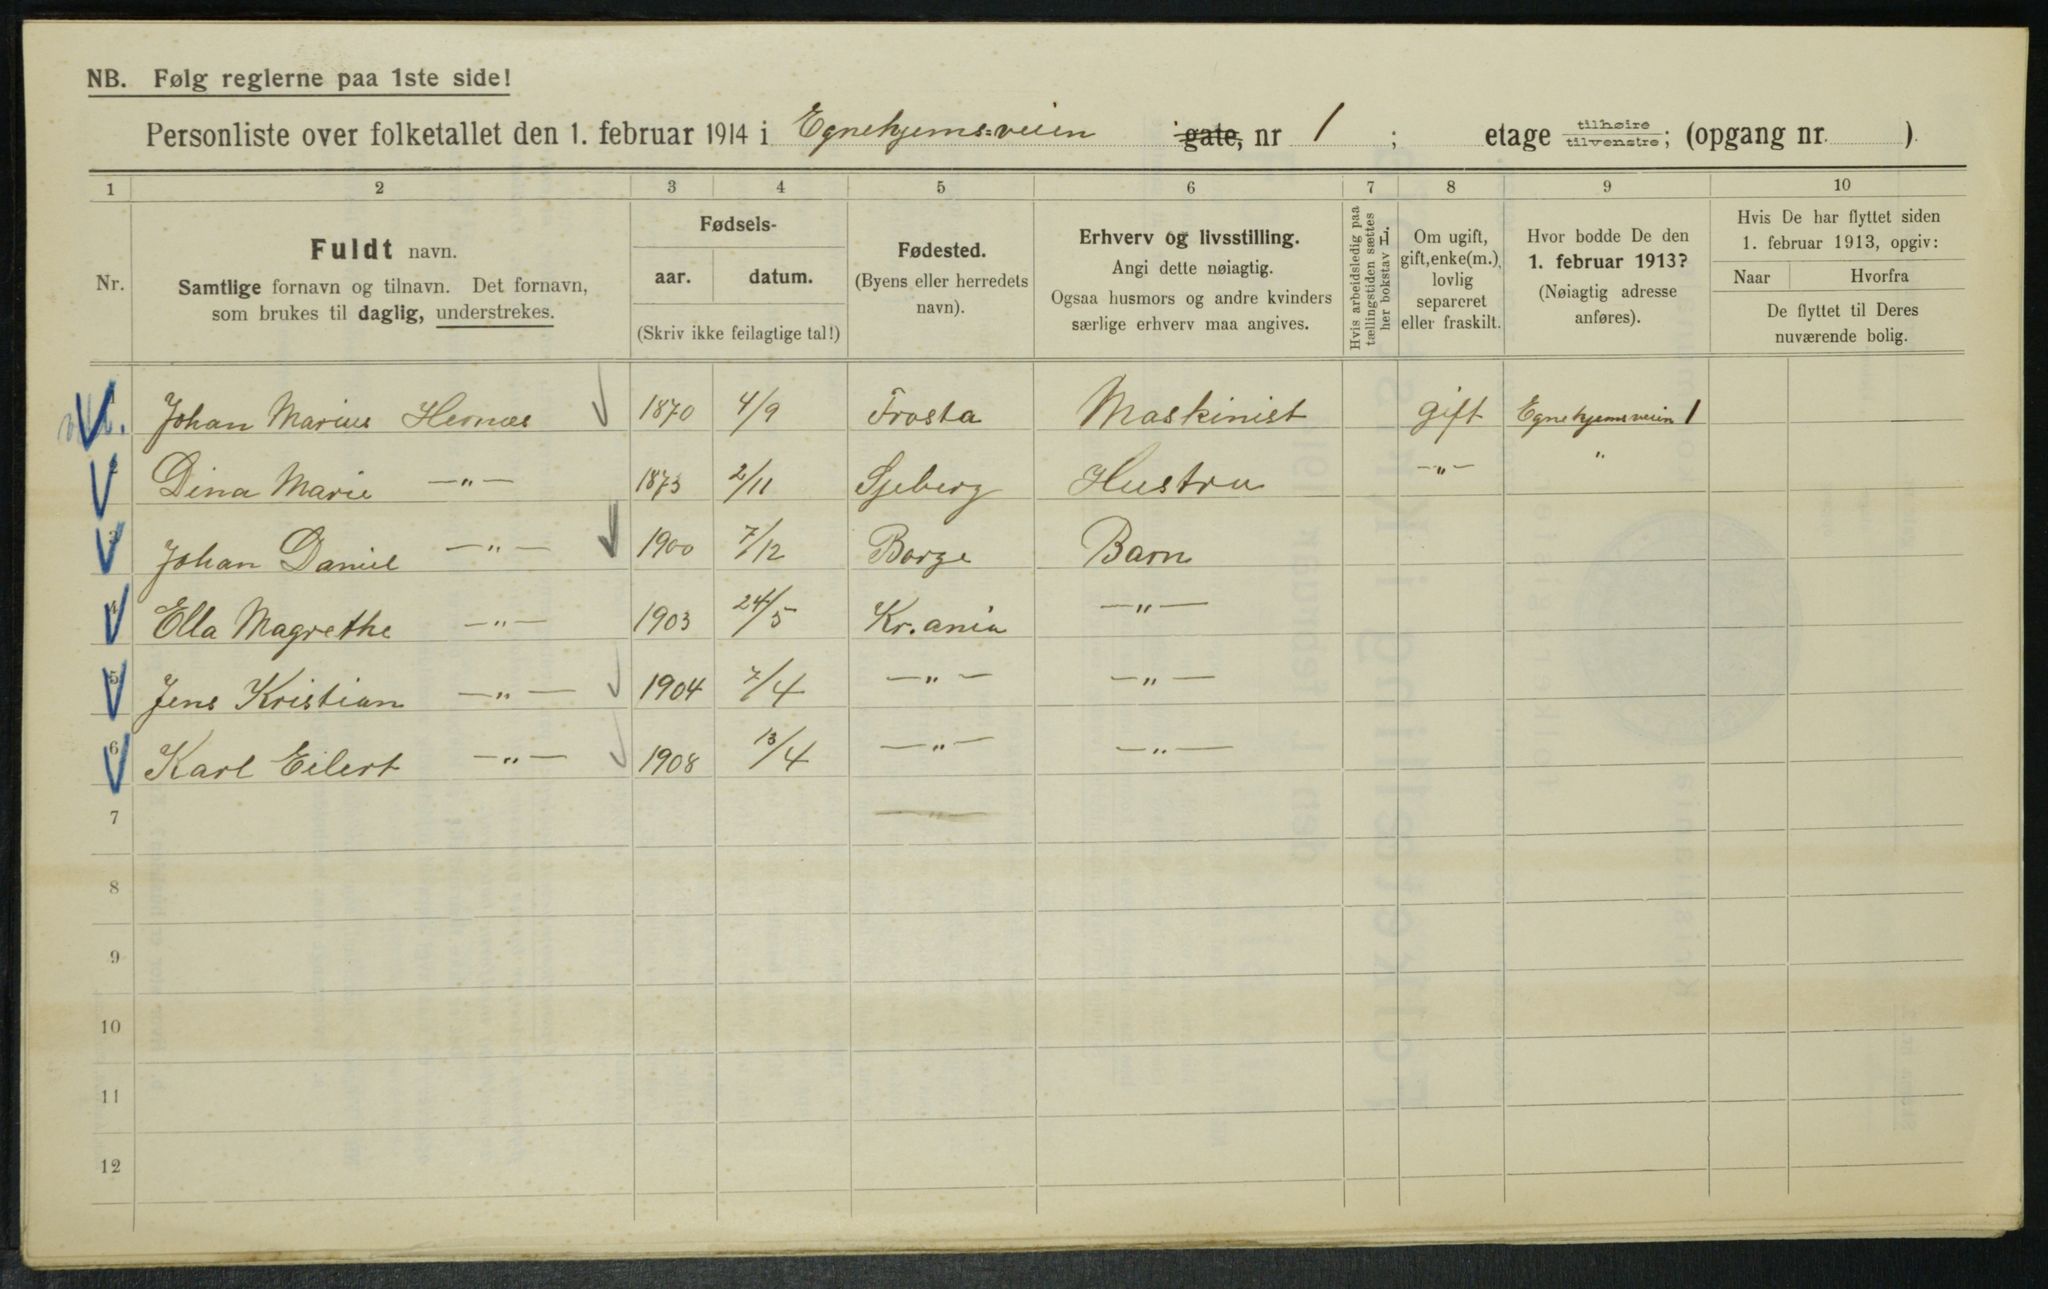 NB. Følg reglerne paa 1ste side!
Personliste over folketallet den 1. februar 1914 i Egnehjems=veien gate, nr 1 ; etage tilhøire tilvenstre; (opgang nr. ).
1 2 3 4 5 6 7 8 9 10
Nr.
Fuldt navn.
Samtlige fornavn og tilnavn. Det fornavn,
som brukes til daglig, understrekes.
Fødsels-
aar. datum.
(Skriv ikke feilagtige tal!)
Fødested.
(Byens eller herredets
navn).
Erhverv og livsstilling.
Angi dette nøiagtig.
Ogsaa husmors og andre kvinders
særlige erhverv maa angives.
Hvis arbeidsledig paa
tællingstiden sættes
her bokstav L.
Om ugift,
gift, enke(m.),
lovlig
separeret
eller fraskilt.
Hvor bodde De den
1. februar 1913?
(Nøiagtig adresse
anføres).
Hvis De har flyttet siden
1. februar 1913, opgiv:
Naar Hvorfra
De flyttet til Deres
nuværende bolig.
Johan Marius Hernæs 1870 4/9 Frosta Maskinist gift Egnehjemsveien 1
2 Dina Marie —"— 1873 2/11 Sjeberg Hustru —"— "
3 Johan Daniel —"— 1900 7/12 Borge Barn
4 Ella Magrethe —"— 1903 24/5 Kr.ania —"—
5 Jens Kristian —"— 1904 7/4 —"— —"—
6 Karl Eilert —"— 1908 13/4 —"— —"—
7 —"—
8
9
10
11
12